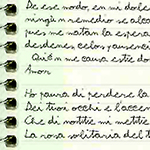 De ese modo, en mi doler
ningún remedio se alcan
pues me matan la espera
desdenes celos y ausenci
Quién me causa este do
Amor
Ho paura di perdere la
Dei tuoi occhi e l'accen
Che di notte mi mette
La rosa solitaria del t